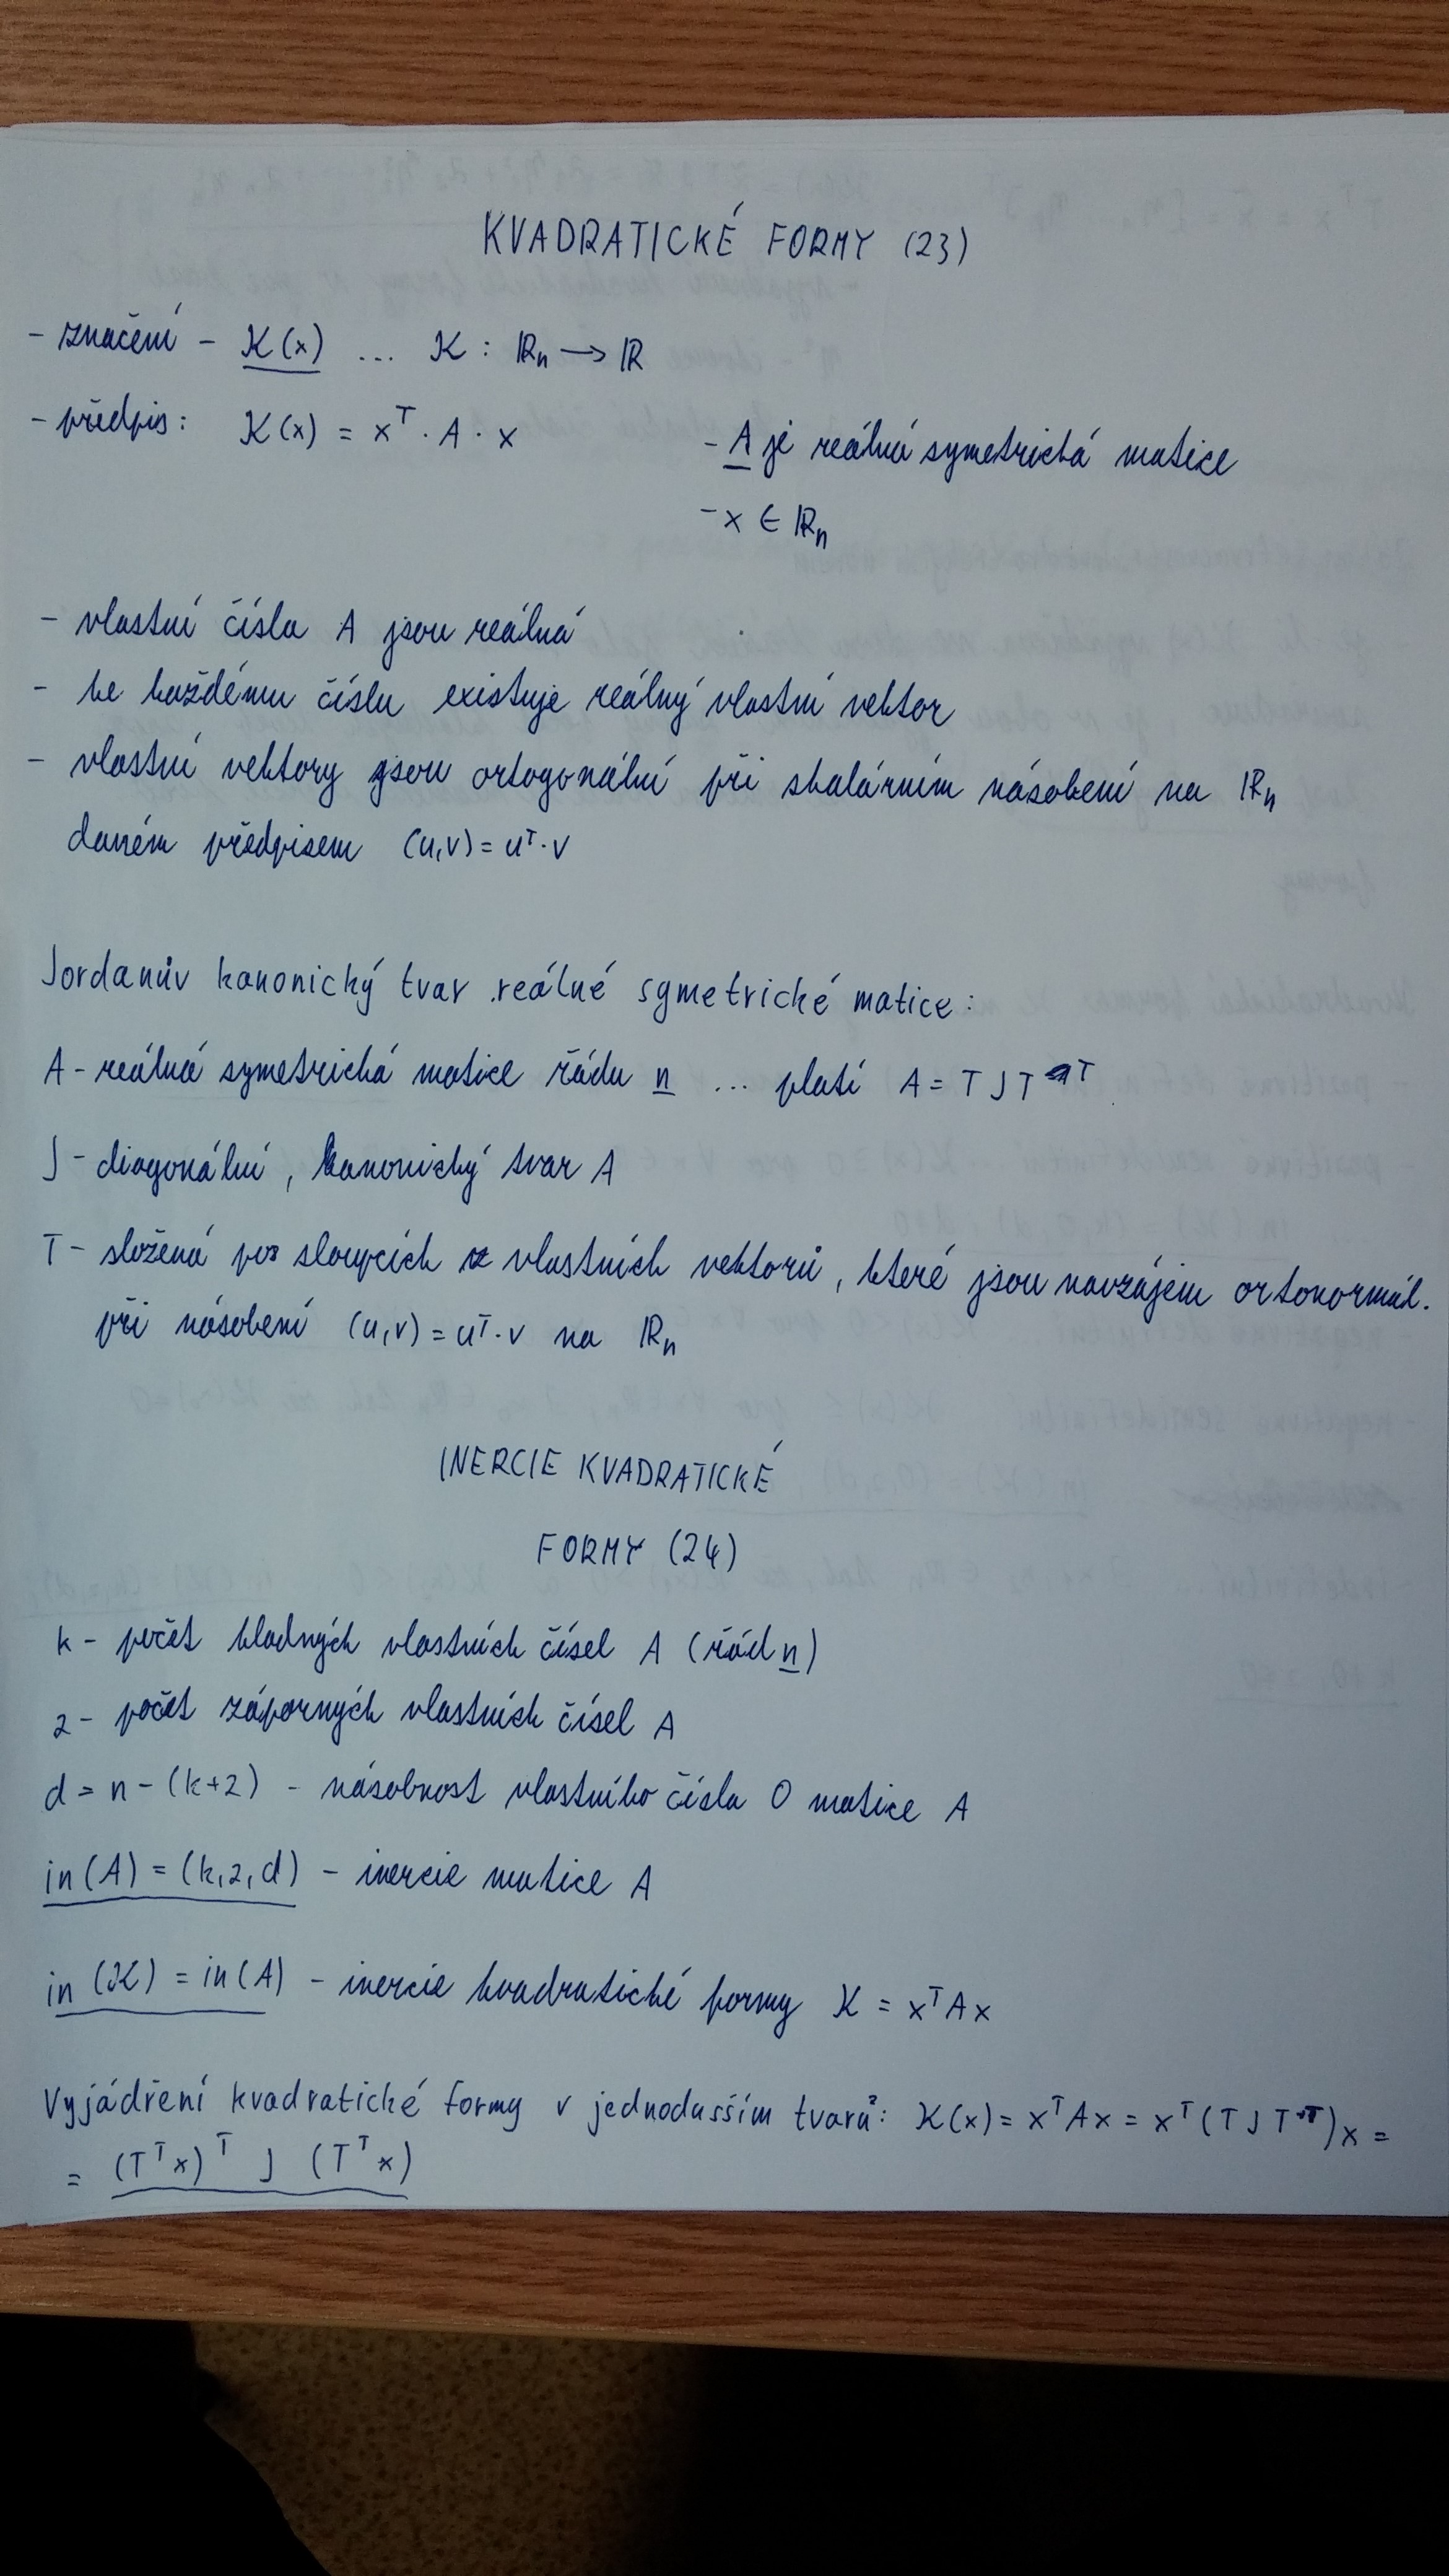 KVADRATICKÉ FORMY (23)
- značení - K(x) ... K : ℝn → ℝ
- předpis: K(x) = x^T · A · x
- A je reálná symetrická matice
- x ∈ ℝn
- vlastní čísla A jsou reálná
- ke každému číslu existuje reálný vlastní vektor
- vlastní vektory jsou ortogonální při skalárním násobení na ℝn
daném předpisem (u,v) = u^T · v
Jordanův kanonický tvar reálné symetrické matice:
A - reálná symetrická matice řádu n ... platí A = T J T^T
J - diagonální, kanonický tvar A
T - složená po sloupcích z vlastních vektorů, které jsou navzájem ortonormál.
při násobení (u,v) = u^T · v na ℝn
INERCIE KVADRATICKÉ
FORMY (24)
k - počet kladných vlastních čísel A (řád n)
z - počet záporných vlastních čísel A
d = n - (k+z) - násobnost vlastního čísla 0 matice A
in(A) = (k,z,d) - inercie matice A
in(K) = in(A) - inercie kvadratické formy K = x^T A x
Vyjádření kvadratické formy v jednodušším tvaru: K(x) = x^T A x = x^T (T J T^T) x =
= (T^T x)^T J (T^T x)